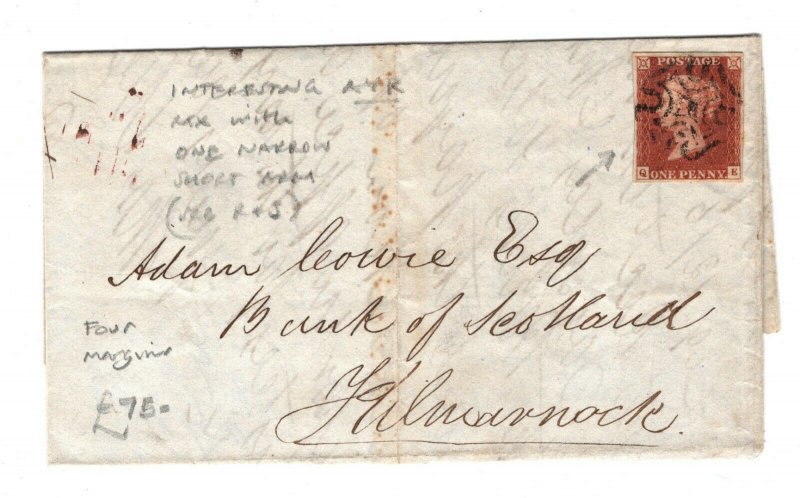 INTERESTING AYR
MX with
ONE NARROW
SHORT ARM
(see R+S)
POSTAGE
ONE PENNY
Q E
Adam Cowie Esq
Bank of Scotland
Kilmarnock.
Four
margins
£75-